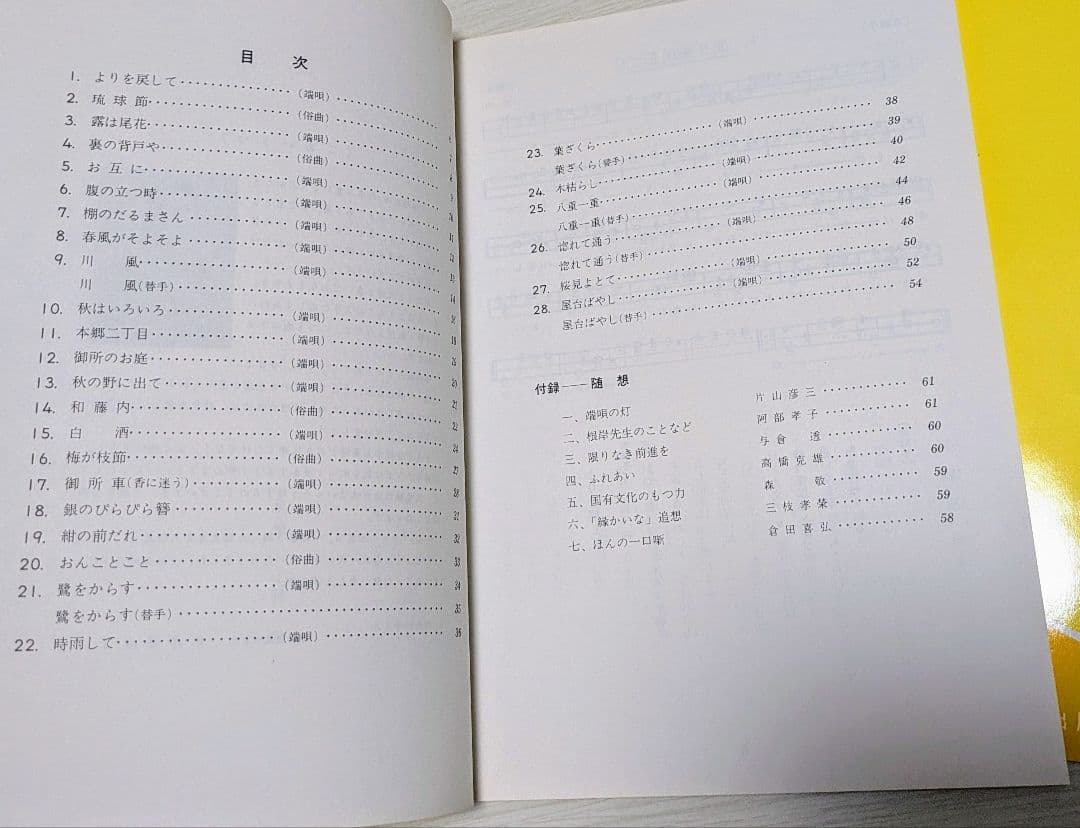 目 次
1. よりを戻して……………（端唄）……………
2. 琉 球 節……………（俗曲）……………
3. 露は尾花……………（端唄）……………
4. 裏の背戸や……………（俗曲）……………
5. お 互 に……………（端唄）……………
6. 腹の立つ時……………（端唄）……………
7. 棚のだるまさん……………（端唄）……………
8. 春風がそよそよ……………（端唄）……………
9. 川 風……………（端唄）……………
川 風（替手）……………
10. 秋はいろいろ……………（端唄）……………
11. 本郷二丁目……………（端唄）……………
12. 御所のお庭……………（端唄）……………
13. 秋の野に出て……………（端唄）……………20
14. 和 藤 内……………（俗曲）……………
15. 白 酒……………（端唄）……………
16. 梅が枝節……………（俗曲）……………
17. 御 所 車（香に迷う）……………（端唄）……………
18. 銀のぴらぴら簪……………（端唄）……………
19. 紺の前だれ……………（端唄）……………32
20. おんことこと……………（俗曲）……………33
21. 鷺をからす……………（端唄）……………34
鷺をからす（替手）……………35
22. 時雨して……………（端唄）……………36
23. 葉ざくら……………（端唄）……………38
葉ざくら（替手）……………39
24. 木枯らし……………（端唄）……………40
25. 八重一重……………（端唄）……………42
八重一重（替手）……………44
26. 惚れて通う……………（端唄）……………46
惚れて通う（替手）……………48
27. 桜見よとて……………（端唄）……………50
28. 屋台ばやし……………（端唄）……………52
屋台ばやし（替手）……………54
付録――随 想
一、端唄の灯 片山彦三……………61
二、根岸先生のことなど 阿部孝子……………61
三、限りなき前進を 与倉 透……………60
四、ふれあい 高橋克雄……………60
五、国有文化のもつ力 森 敬……………59
六、「縁かいな」追想 三枝孝榮……………59
七、ほんの一口噺 倉田喜弘……………58